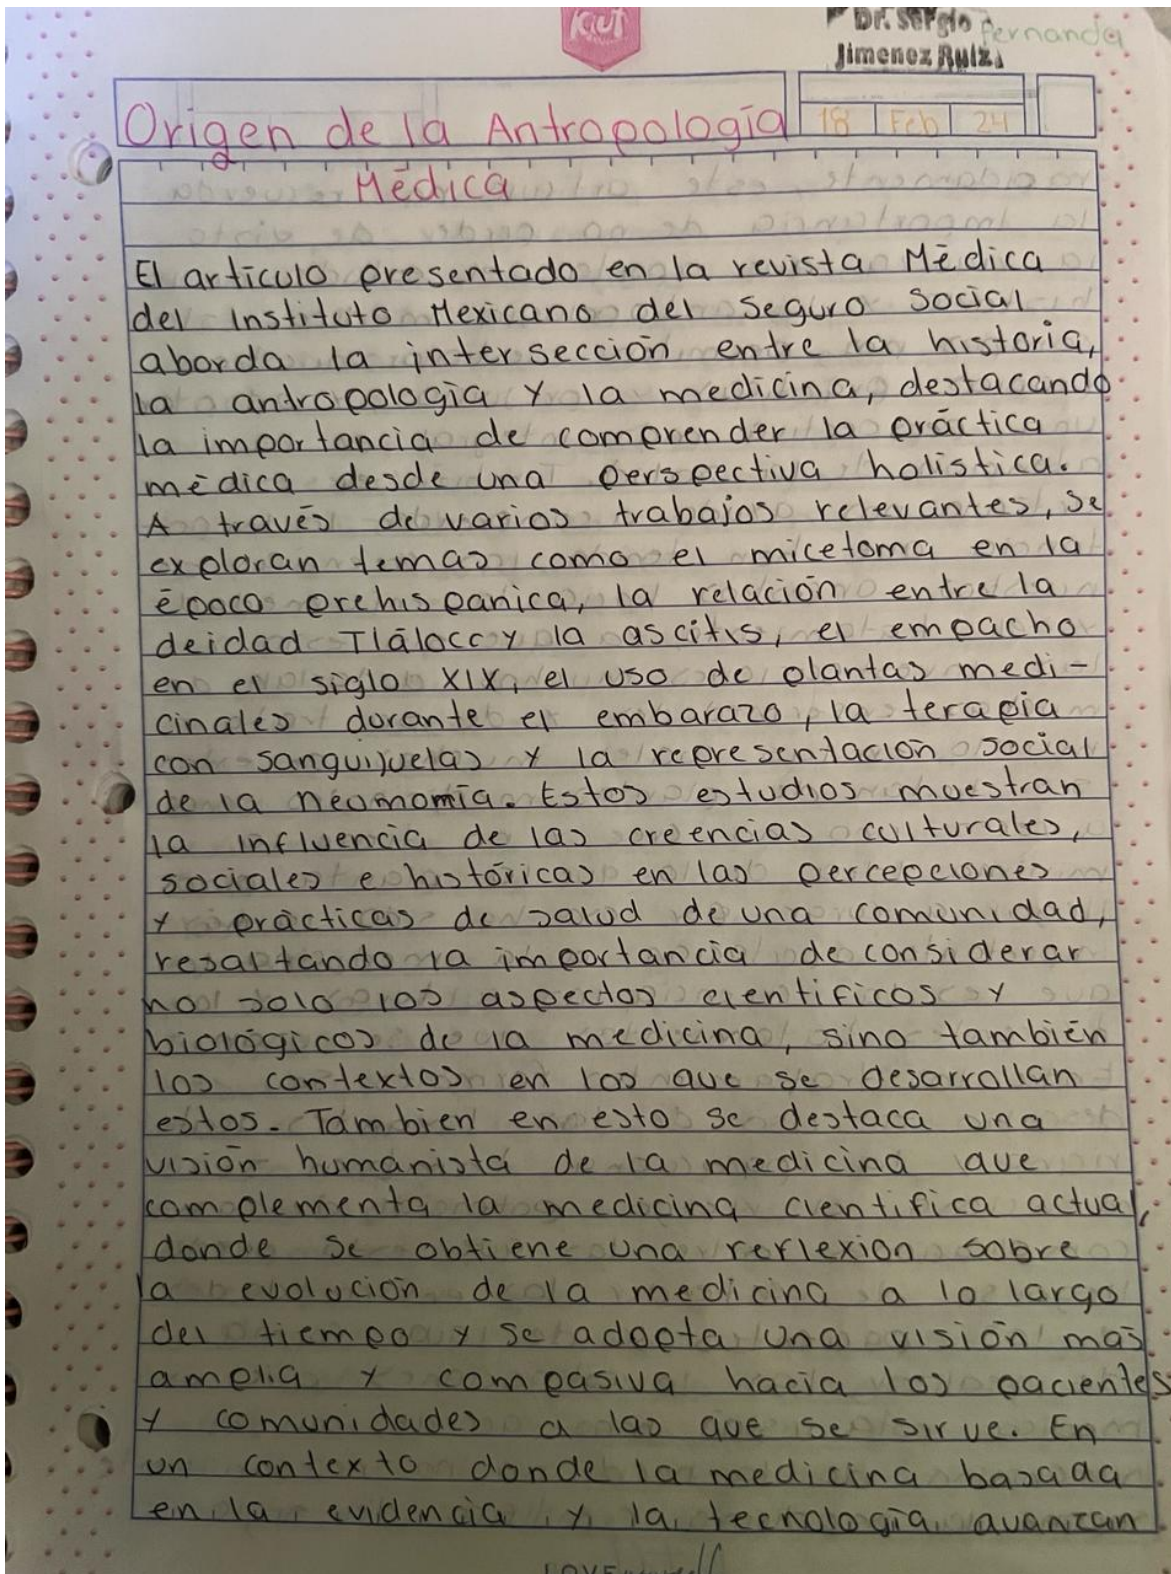 Kiut
Dr. Sergio
Jimenez Ruiz.
Fernanda
Origen de la Antropología
18 Feb 24
Médica
El articulo presentado en la revista Médica
del Instituto Mexicano del Seguro Social
aborda la intersección entre la historia,
la antropología y la medicina, destacando
la importancia de comprender la práctica
médica desde una perspectiva holistica.
A través de varios trabajos relevantes, se
exploran temas como el micetoma en la
época prehispanica, la relación entre la
deidad Tláloc y la ascitis, el empacho
en el siglo XIX, el uso de plantas medi-
cinales durante el embarazo, la terapia
con sanguijuelas y la representación social
de la neumomía. Estos estudios muestran
la influencia de las creencias culturales,
sociales e históricas en las percepciones
y prácticas de salud de una comunidad,
resaltando la importancia de considerar
no solo los aspectos cientificos y
biológicos de la medicina, sino también
los contextos en los que se desarrollan
estos. Tambien en esto se destaca una
visión humanista de la medicina que
complementa la medicina cientifica actual,
donde se obtiene una reflexion sobre
la evolución de la medicina a lo largo
del tiempo y se adopta una visión más
amplia y compasiva hacia los pacientes
y comunidades a las que se sirve. En
un contexto donde la medicina basada
en la evidencia y la tecnología avanzan